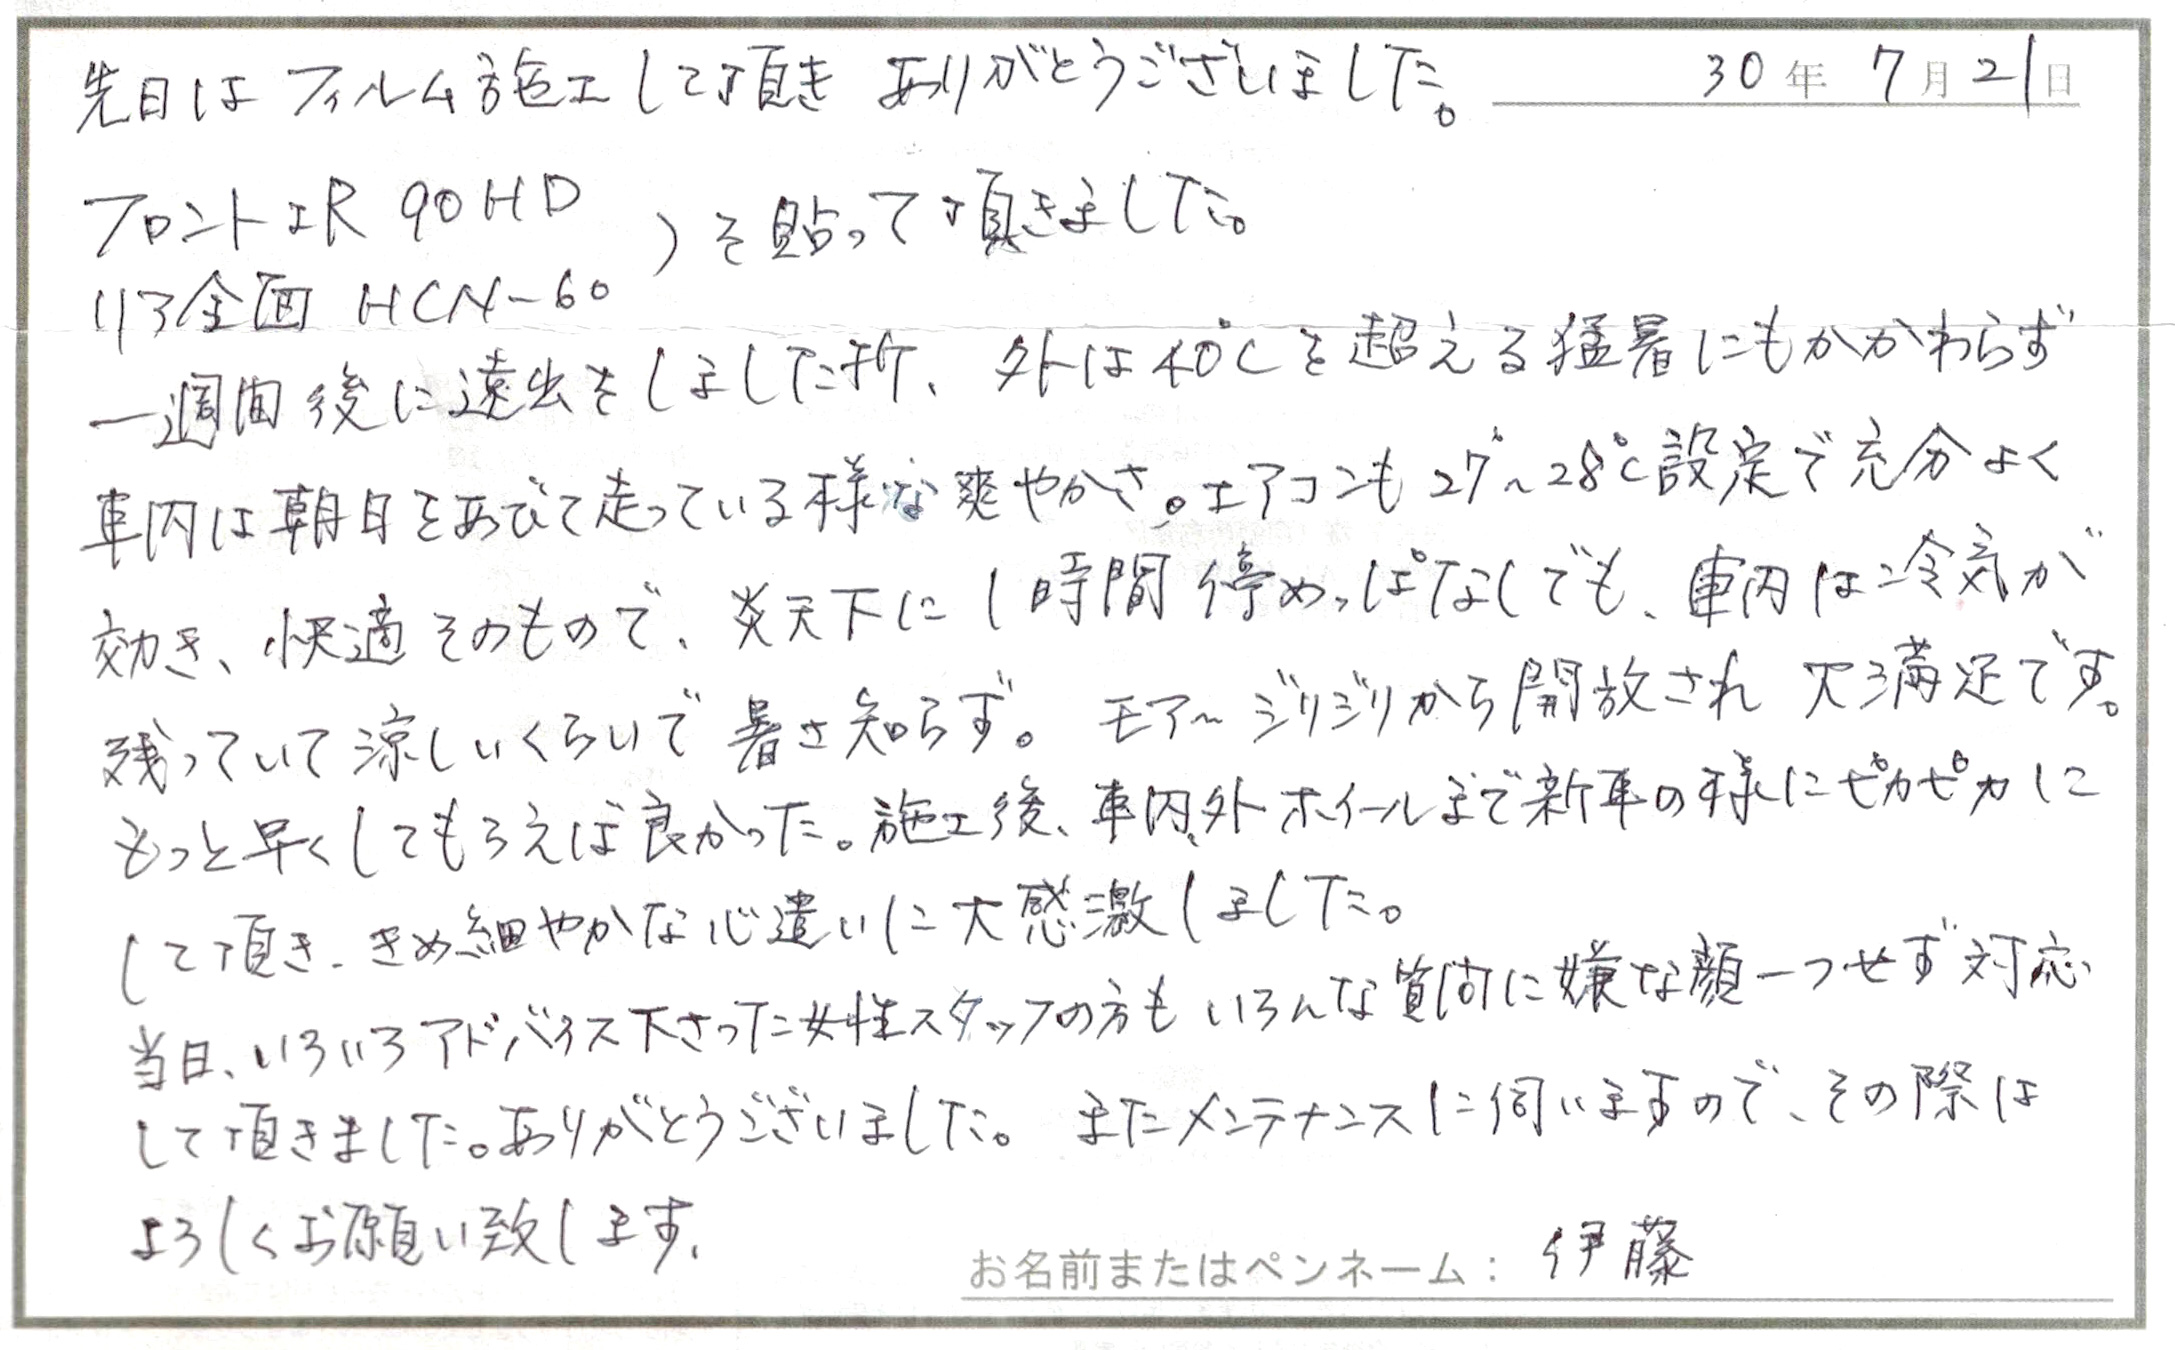 30年 7月21日
先日はフィルム施工して頂き ありがとうございました。
フロントIR 90HD
リア全面 HCN-60
)を貼って頂きました。
一週間後に遠出をしました所、外は40℃を超える猛暑にもかかわらず
車内は朝日をあびて走っている様な爽やかさ。エアコンも27°~28℃設定で充分よく
効き、快適そのもので、炎天下に1時間停めっぱなしでも、車内は冷気が
残っていて涼しいくらいで暑さ知らず。モア~ジリジリから開放され 大満足です。
もっと早くしてもらえば良かった。施工後、車内外ホイールまで新車の様にピカピカに
して頂き、きめ細やかな心遣いに大感激しました。
当日、いろいろアドバイス下さった女性スタッフの方もいろんな質問に嫌な顔一つせず対応
して頂きました。ありがとうございました。またメンテナンスに伺いますので、その際は
よろしくお願い致します。
お名前またはペンネーム: 伊藤